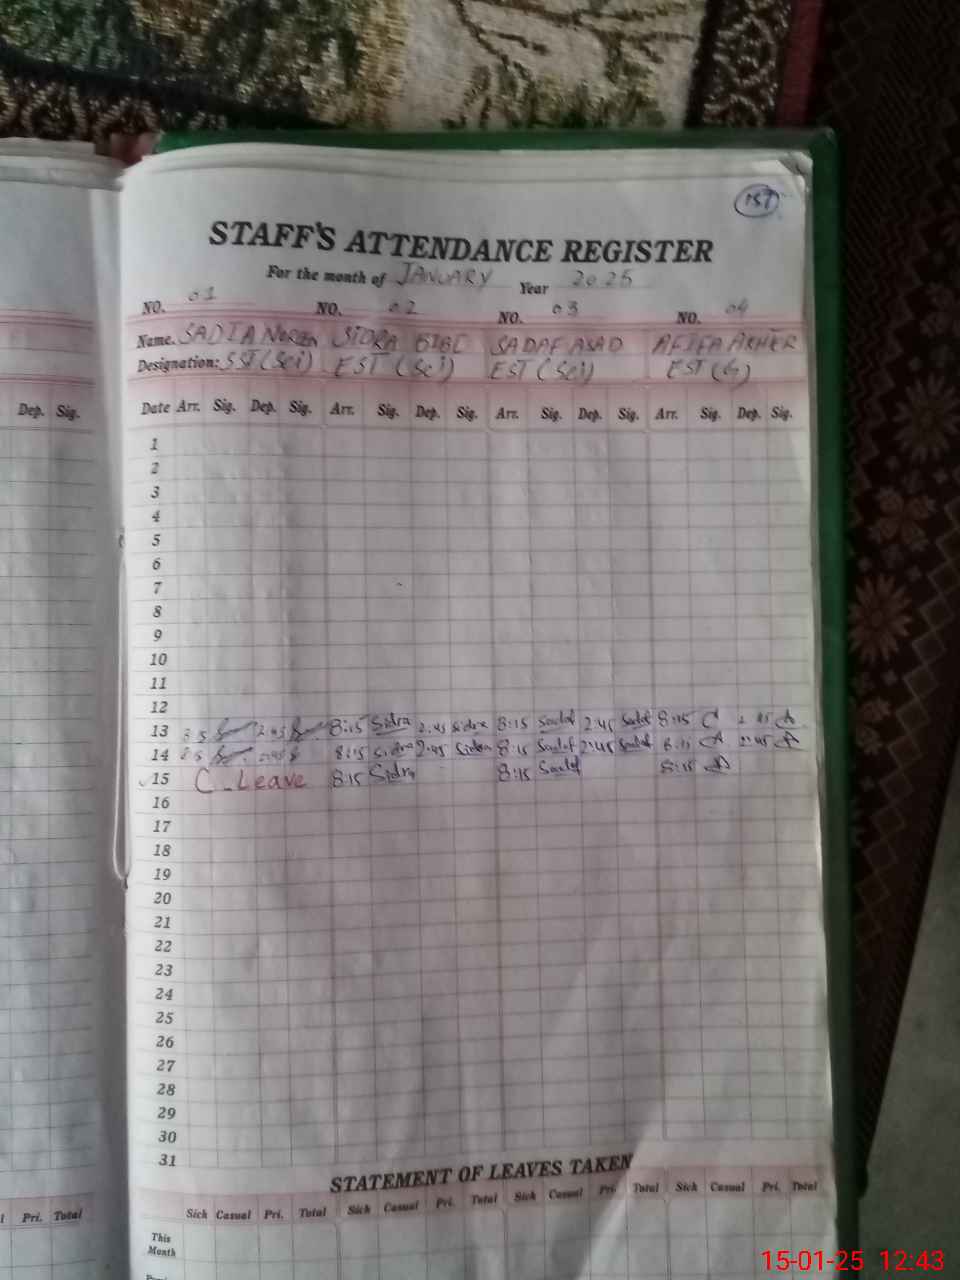 1ST
STAFF'S ATTENDANCE REGISTER
For the month of JANUARY Year 2025
NO. 01 NO. 02 NO. 03 NO. 04
Name. SADIA NOREEN SIDRA BIBI SADAF ASAD AFIFA AKHER
Designation: SST (Sci) EST (Sci) EST (Sci) EST (G)
Dep. Sig. Date Arr. Sig. Dep. Sig. Arr. Sig. Dep. Sig. Arr. Sig. Dep. Sig. Arr. Sig. Dep. Sig.
1
2
3
4
5
6
7
8
9
10
11
12
13 2.45 8:15 Sidra 2.45 Sidra 8:15 Sadaf 2:45 Sadaf 8:15
14 2:45 8:15 Sidra 2:45 Sidra 8:15 Sadaf 2:45 Sadaf 8:15 2:45
15 C. Leave 8:15 Sidra 8:15 Sadaf 8:15
16
17
18
19
20
21
22
23
24
25
26
27
28
29
30
31
STATEMENT OF LEAVES TAKEN
Pri. Total Sick Casual Pri. Total Sick Casual Pri. Total Sick Casual Pri. Total Sick Casual Pri. Total
This
Month
15-01-25 12:43